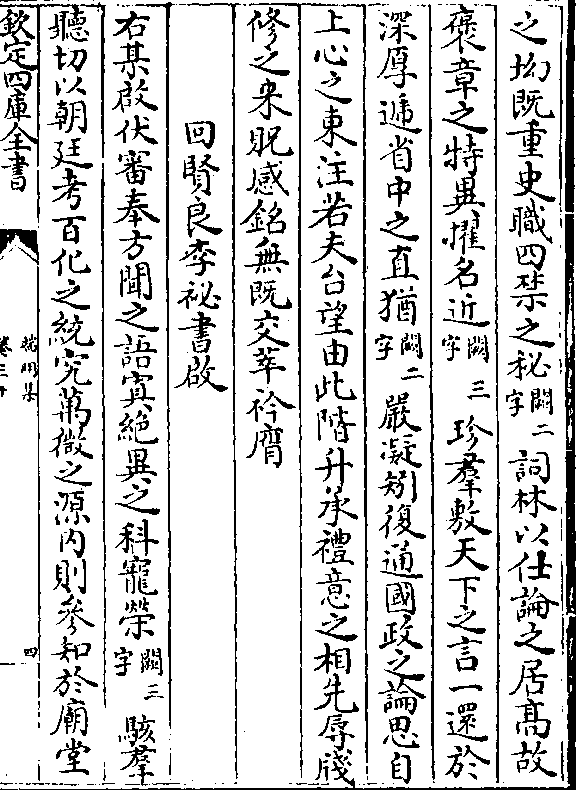 之㘭既重史職四禁之秘闕二字詞林以仕論之居髙故
褒章之特異擢名近闕三字珍羣敷天下之言一還於
深厚遞省中之直猶闕二字嚴凝矧復通國政之論思自
上心之東注若夫台望由此階升承禮意之相先辱牋
修之来貺感銘無既交萃衿膺
回賢良李祕書啟
右某啟伏審奉方聞之語寘絶異之科寵榮闕三字駭羣
聽切以朝廷考百化之統究萬微之源内則參知於廟堂
欽定四庫全書
端明集
卷三十
四